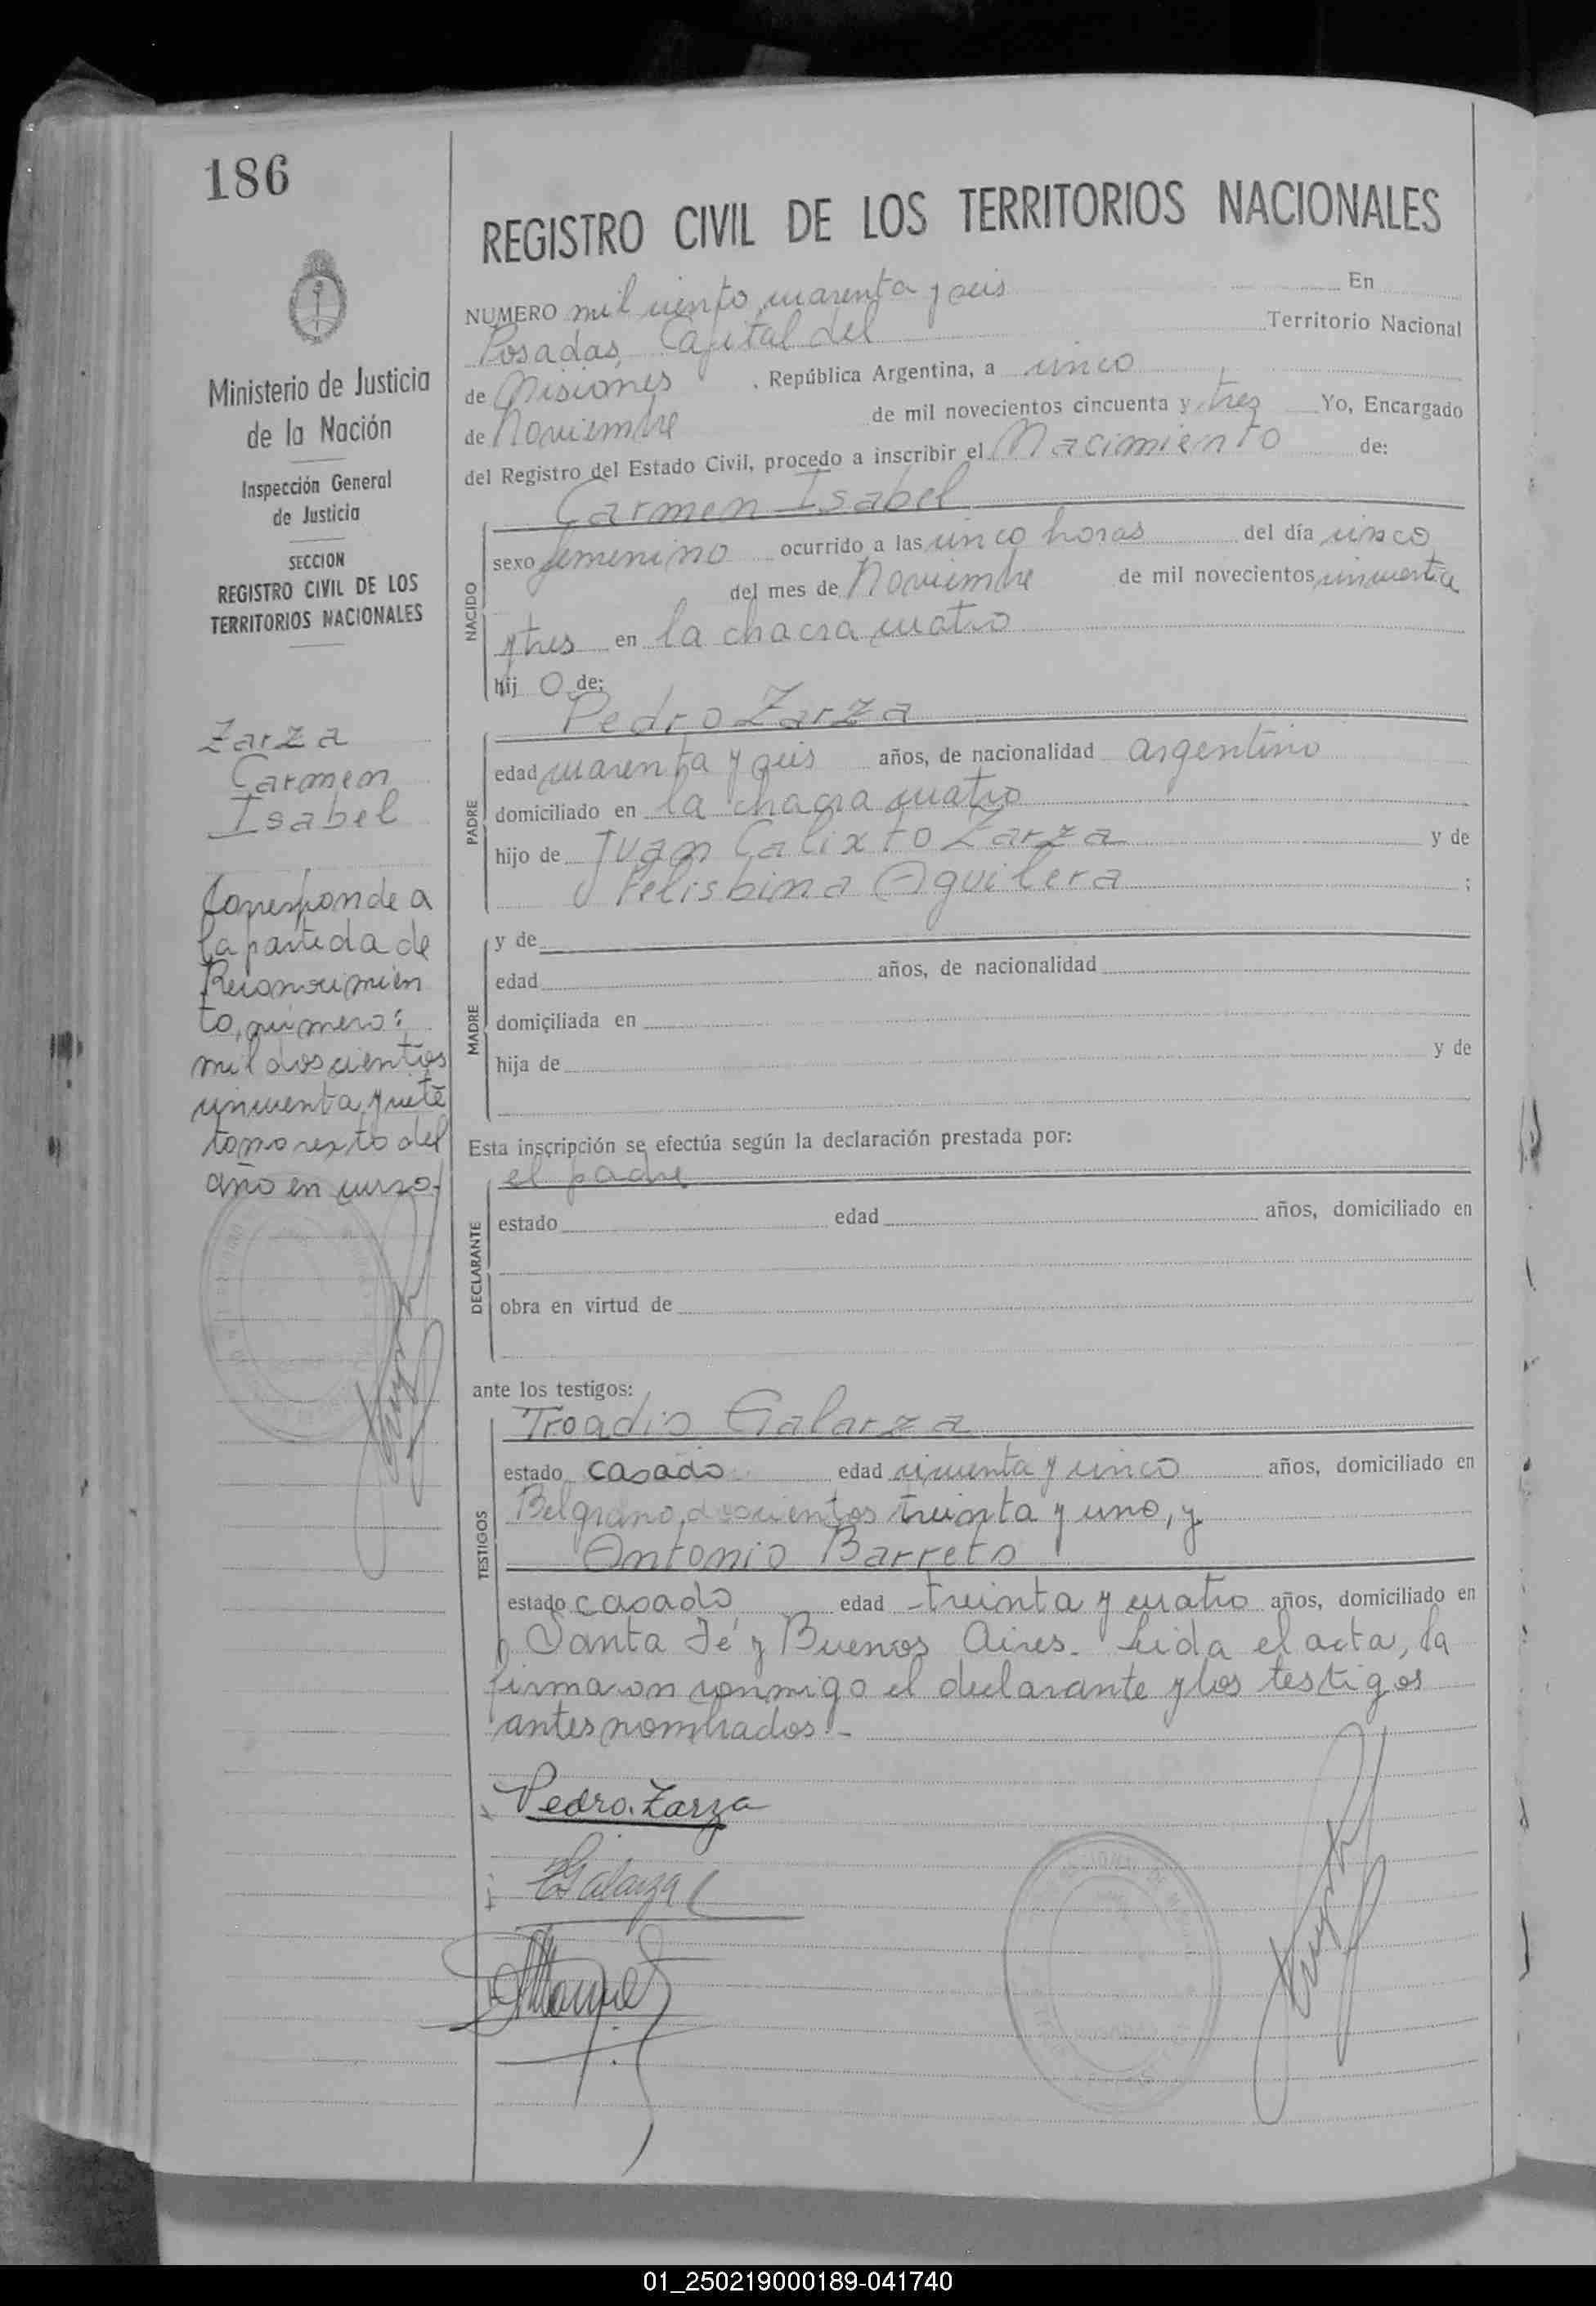 186
Ministerio de Justicia
de la Nación
Inspección General
de Justicia
SECCION
REGISTRO CIVIL DE LOS
TERRITORIOS NACIONALES
Zarza
Carmen
Isabel
Corresponde a
la partida de
Reconocimien
to, número:
mil doscientos
cincuenta y siete
tomo sexto del
año en curso.
REGISTRO CIVIL DE LOS TERRITORIOS NACIONALES
NUMERO mil ciento cuarenta y seis En
Posadas, Capital del Territorio Nacional
de Misiones , República Argentina, a cinco
de Noviembre de mil novecientos cincuenta y tres Yo, Encargado
del Registro del Estado Civil, procedo a inscribir el Nacimiento de:
Carmen Isabel
NACIDO
sexo femenino ocurrido a las cinco horas del día cinco
del mes de Noviembre de mil novecientos cincuenta
y tres en la chacra cuatro
hij o de:
Pedro Zarza
PADRE
edad cuarenta y seis años, de nacionalidad argentino
domiciliado en la chacra cuatro
hijo de Juan Calixto Zarza y de
Felisbina Aguilera ;
MADRE
y de
edad años, de nacionalidad
domiciliada en
hija de y de
Esta inscripción se efectúa según la declaración prestada por:
el padre
DECLARANTE
estado edad años, domiciliado en
obra en virtud de
ante los testigos:
Troadio Galarza
TESTIGOS
estado casado edad cincuenta y cinco años, domiciliado en
Belgrano doscientos treinta y uno, y
Antonio Barreto
estado casado edad treinta y cuatro años, domiciliado en
Santa Fé y Buenos Aires. Leida el acta, la
firmaron conmigo el declarante y los testigos
antes nombrados.-
Pedro. Zarza
Galarza
01_250219000189-041740